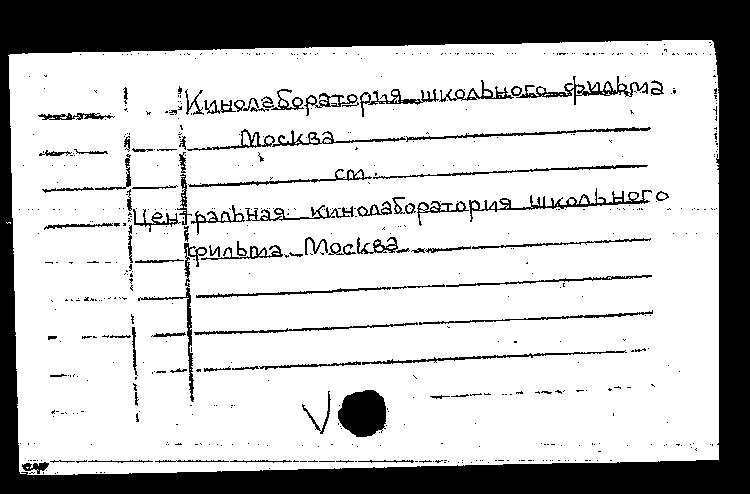 Кинолаборатория школьного фильма.
Москва
см.
Центральная кинолаборатория школьного
фильма. Москва